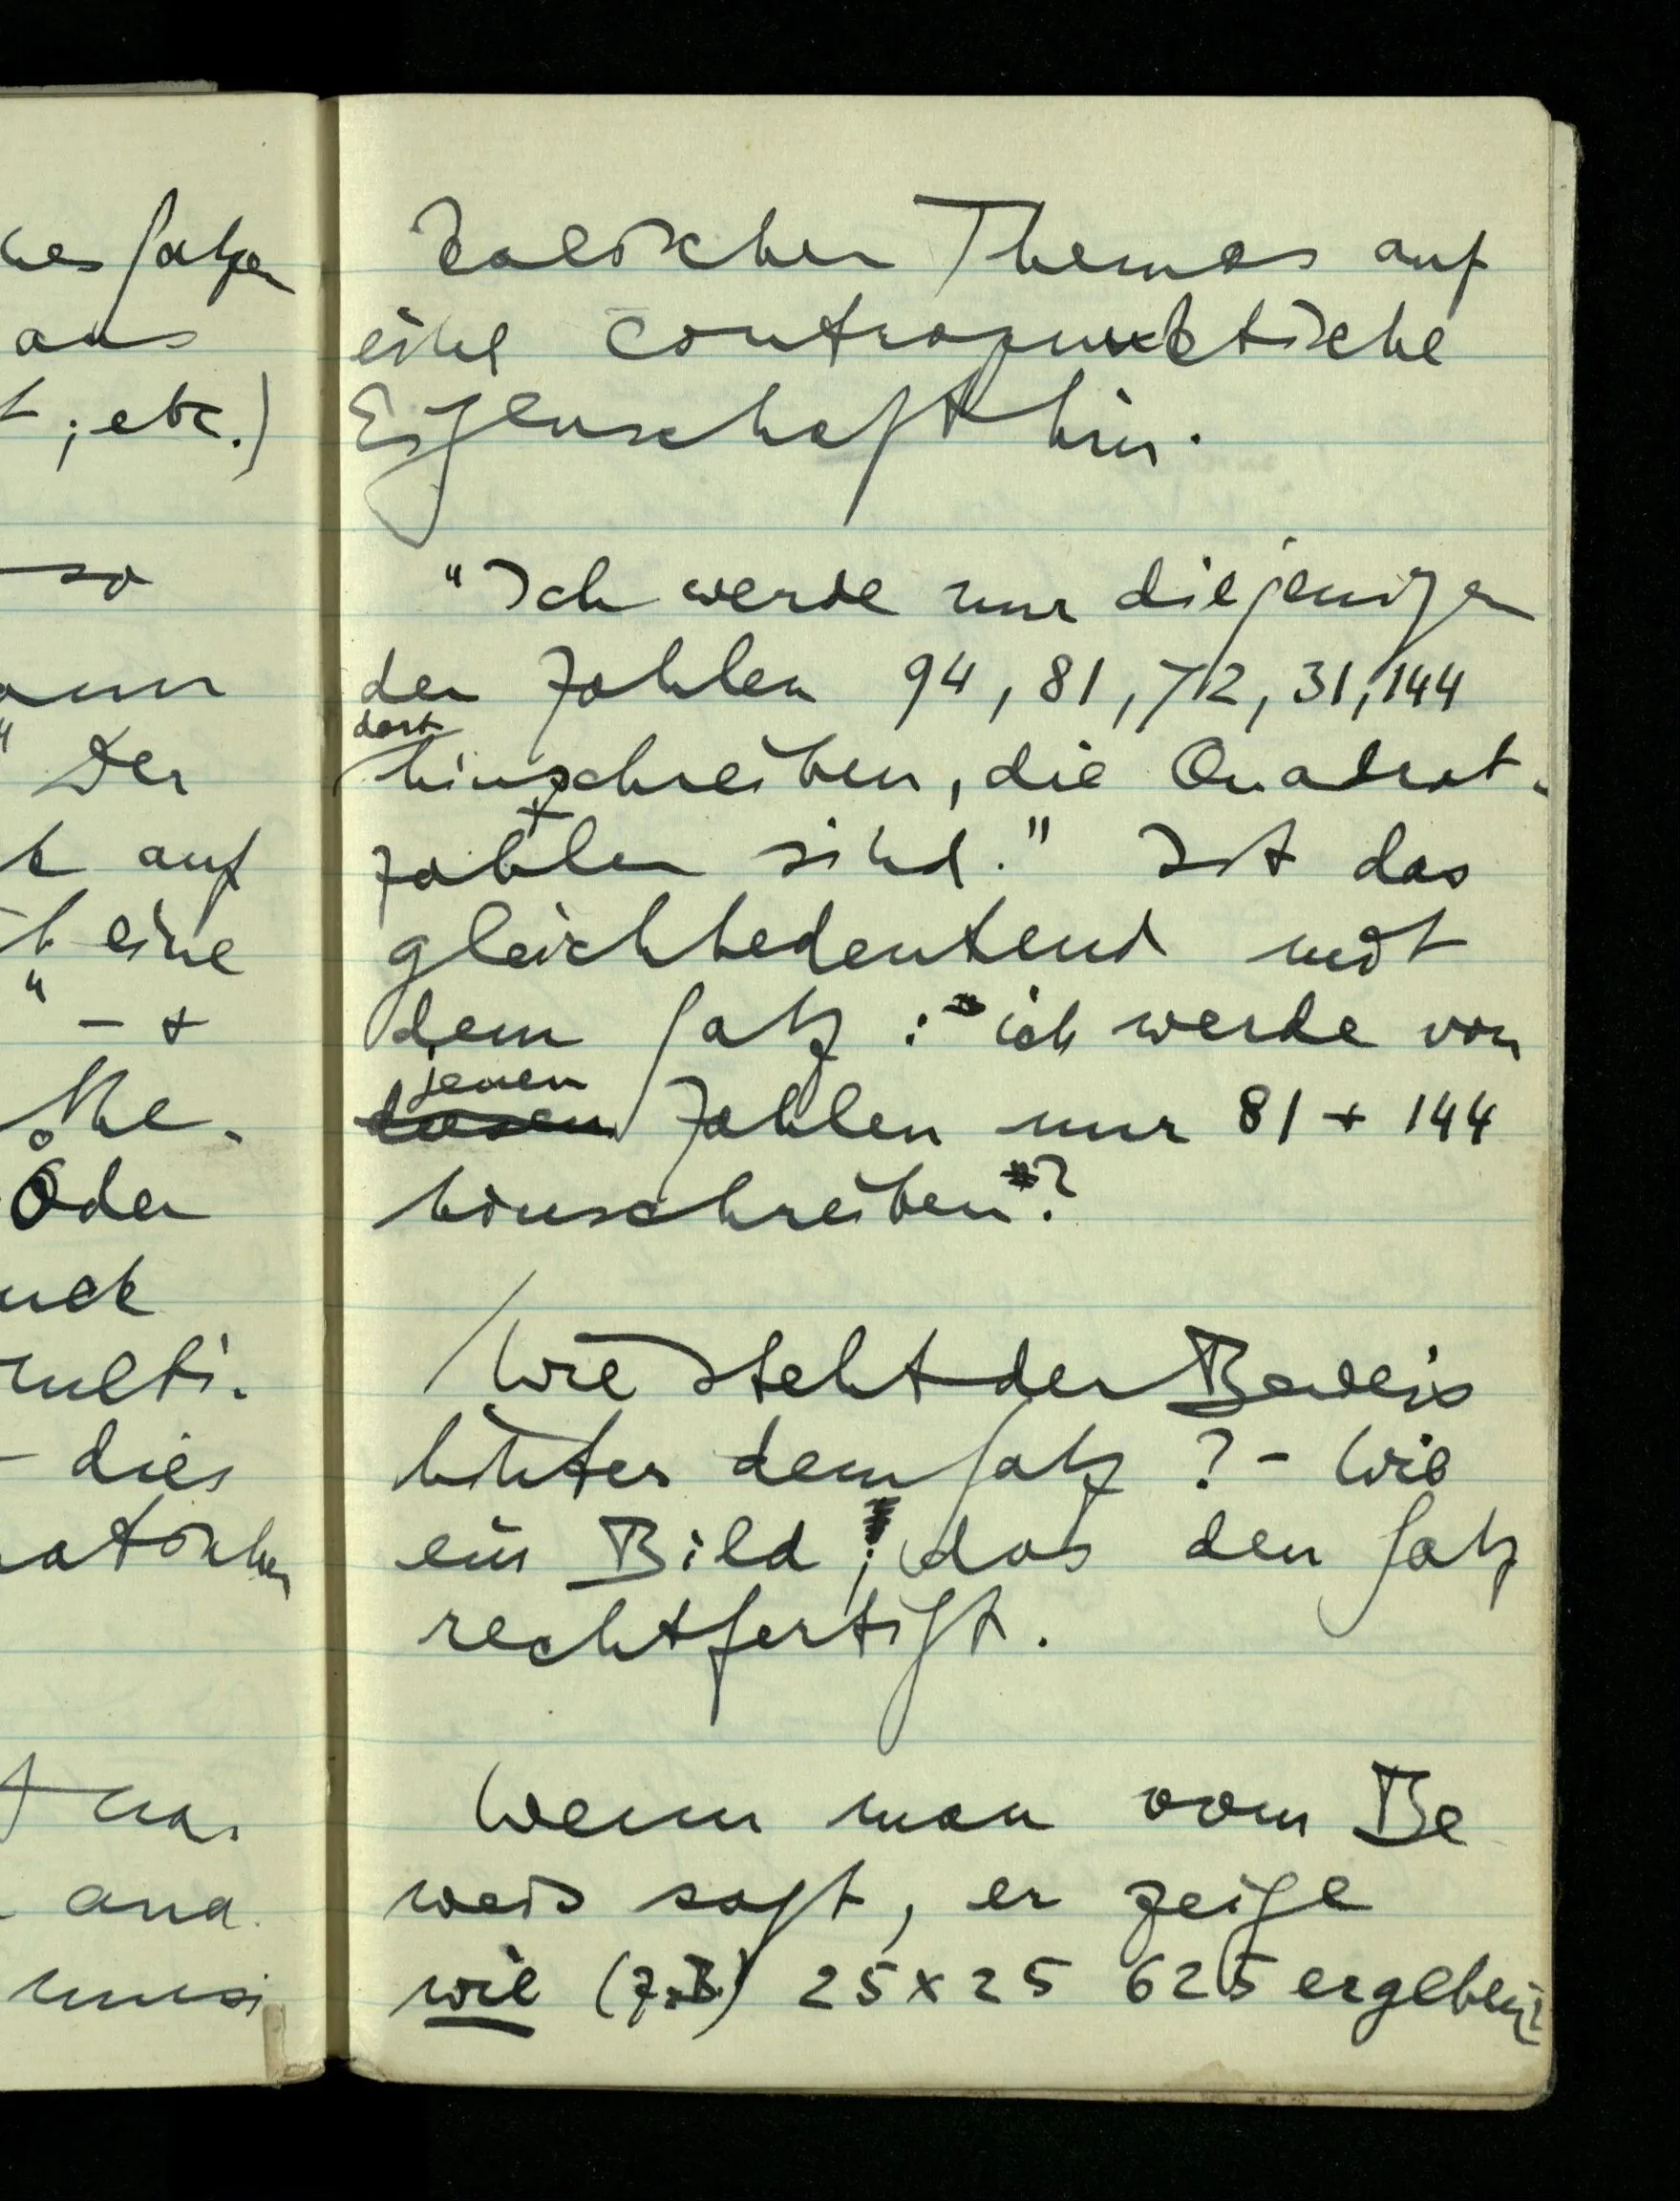 hes Satzes
aus
t ; etc.)
so
ann
" Der
k auf
h eine
" – +
The-
Oder
uck
multi-
– dies
matischen
t nas
and.
musi
kalischen Themas auf
eine contrapunktische
Eigenschaft hin.
"Ich werde nur diejenigen
der Zahlen 94, 81, 72, 31, 144
dort
hinschreiben, die Quadrat-
zahlen sind." Ist das
gleichbedeutend mit
dem Satz : ich werde von
jenen
diesen Zahlen nur 81 + 144
hinschreiben?
Wie steht der Beweis
hinter dem Satz ? – Wie
ein Bild, das den Satz
rechtfertigt.
Wenn man vom Be
weis sagt, er zeige
wie (z.B.) 25 x 25 625 ergeben;